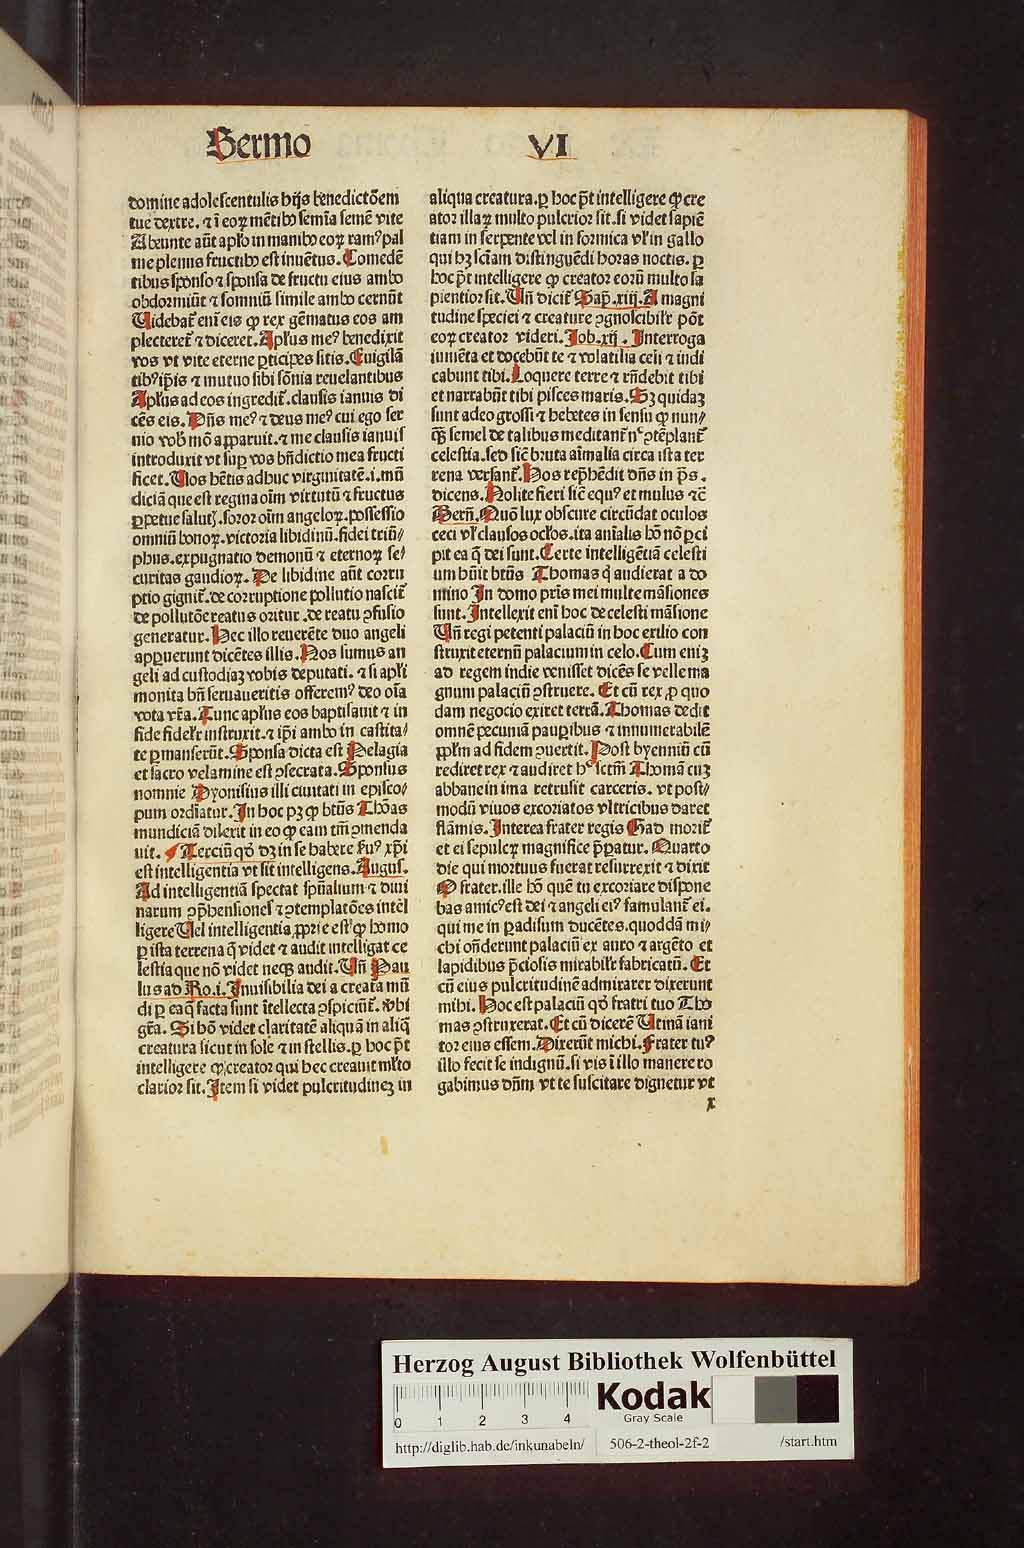 Sermo VI
domine adolescentulis hijs benedictōem
tue dextre. ⁊ ī eoꝝ mētibꝯ semīa semē vite
Abeunte aūt apľo in manibꝯ eoꝝ ramꝰ pal
me plenus fructibꝯ est inuētus. Comedē
tibus sponso ⁊ sponsa de fructu eius ambo
obdormiūt ⁊ somniū simile ambo cernūt
Uidebat᷑ enī eis ꝙ rex gēmatus eos am
plecteret᷑ ⁊ diceret. Apľus meꝰ benedixit
vos vt vite eterne ꝑticipes sitis. Euigilā
tibꝰ ip̄is ⁊ mutuo sibi sōnia reuelantibus
Apľus ad eos ingredit᷑. clausis ianuis di
cēs eis. Dn̄s meꝰ ⁊ deus meꝰ cui ego ser
uio vob̄ mō apparuit. ⁊ me clausis ianuis
introduxit vt suꝑ vos bn̄dictio mea fructi
ficet. Uos hētis adhuc virginitatē .i. mū
diciā que est regina oīm virtutū ⁊ fructus
ꝑpetue salutꝭ. soror oīm angeloꝝ. possessio
omniū bonoꝝ. victoria libidinū. fidei triū/
phus. expugnatio demonū ⁊ eternoꝝ se/
curitas gaudioꝝ. De libidine aūt corru
ptio gignit᷑. de corruptione pollutio nascit᷑
de pollutōe reatus oritur. de reatu ꝯfusio
generatur. Hec illo reuerēte duo angeli
apꝑuerunt dicētes illis. Nos sumus an
geli ad custodiaꝫ vobis deputati. ⁊ si apľi
monita bn̄ seruaueritis offeremꝰ deo oīa
vota vr̄a. Tunc apľus eos baptisauit ⁊ in
fide fideľr instruxit. ⁊ ip̄i ambo in castita/
te ꝑmanserūt. Sponsa dicta est Pelagia
et sacro velamine est ꝯsecrata. Sponsus
nomnie Dyonisius illi ciuitati in episco/
pum ordīatur. In hoc pꝫ ꝙ btūs Thōas
mundiciā dilexit in eo ꝙ eam tm̄ ꝯmenda
uit. Terciū qđ dꝫ in se habere ẜuꝰ xp̄i
est intelligentia vt sit intelligens. Augus.
Ad intelligentiā spectat sp̄ualium ⁊ diui
narum ꝯp̄hensiones ⁊ ꝯtemplatōes intel
ligere Uel intelligentia ꝓprie est ꝙ homo
ꝑ ista terrena q̄ videt ⁊ audit intelligat ce
lestia que nō videt neqꝫ audit. Un̄ Pau
lus ad Ro.i. Inuisibilia dei a creata mū
di ꝑ ea q̄ facta sunt ītellecta ꝯspiciūt᷑. vbi
gr̄a. Si hō videt claritatē aliquā in aliq̄
creatura sicut in sole ⁊ in stellis. ꝑ hoc p̄t
intelligere ꝙ creator qui hec creauit mľto
clarior sit. Item si videt pulcritudineꝫ in
aliqua creatura. ꝑ hoc p̄t intelligere ꝙ cre
ator illaꝝ multo pulcrior sit. si videt sapiē
tiam in serpente vel in formica vľ in gallo
qui hꝫ sciam distinguēdi horas noctis. ꝑ
hoc p̄t intelligere ꝙ creator eorū multo sa
pientior sit. Un̄ dicit᷑ Sap̄.xiij. A magni
tudine speciei ⁊ creature ꝯgnoscibiľr pōt
eoꝝ creator videri. Job.xij. Interroga
iumēta et docebūt te ⁊ volatilia celi ⁊ indi
cabunt tibi. Loquere terre ⁊ rn̄debit tibi
et narrabūt tibi pisces maris. Sꝫ quidaꝫ
sunt adeo grossi ⁊ hebetes in sensu ꝙ nun/
qꝫ̄ semel de talibus meditant᷑ nᶜ ꝯtēplant᷑
celestia. sed sic̄ bruta aīmalia circa ista ter
rena versant᷑. Nos rep̄hēdit dn̄s in pꝰs.
dicens. Nolite fieri sic̄ equꝰ et mulus ⁊c̄
Bern̄. Quō lux obscure circūdat oculos
ceci vľ clausos ocľos. ita aīalis hō nō ꝑci
pit ea q̄ dei sunt. Certe intelligētiā celesti
um hūit btūs Thomas q̄ audierat a do
mino In domo pr̄is mei multe māsiones
sunt. Intellexit enī hoc de celesti māsione
Un̄ regi petenti palaciū in hoc exilio con
struxit eternū palacium in celo. Cum eniꝫ
ad regem indie venisset dicēs se velle ma
gnum palaciū ꝯstruere. Et cū rex ꝓ quo
dam negocio exiret terrā. Thomas dedit
omnē pecuniā pauꝑibus ⁊ innumerabilē
ꝓpľm ad fidem ꝯuertit. Post byenniū cū
rediret rex ⁊ audiret hᶜ sctm̄ Thomā cuꝫ
abbane in ima retrusit carceris. vt post/
modū viuos excoriatos vltricibus daret
flāmis. Interea frater regis Gad morit᷑
et ei sepulcꝝ magnifice p̄ꝑatur. Quarto
die qui mortuus fuerat resurrexit ⁊ dixit
O frater. ille hō quē tu excoriare dispone
bas amicꝰ est dei ⁊ angeli eiꝰ famulant᷑ ei.
qui me in ꝑadisum ducētes. quoddā mi/
chi on̄derunt palaciū ex auro ⁊ argēto et
lapidibus p̄ciosis mirabiľr fabricatū. Et
cū eius pulcritudinē admirarer dixerunt
mihi. Hoc est palaciū qđ fratri tuo Tho
mas ꝯstruxerat. Et cū dicerē Utinā iani
tor eius essem. Dixerūt michi. Frater tuꝰ
illo fecit se indignū. si vis ī illo manere ro
gabimus dn̄m vt te suscitare dignetur vt
x
Herzog August Bibliothek Wolfenbüttel
0 1 2 3 4
Kodak
Gray Scale
http://diglib.hab.de/inkunabeln/ 506-2-theol-2f-2 /start.htm